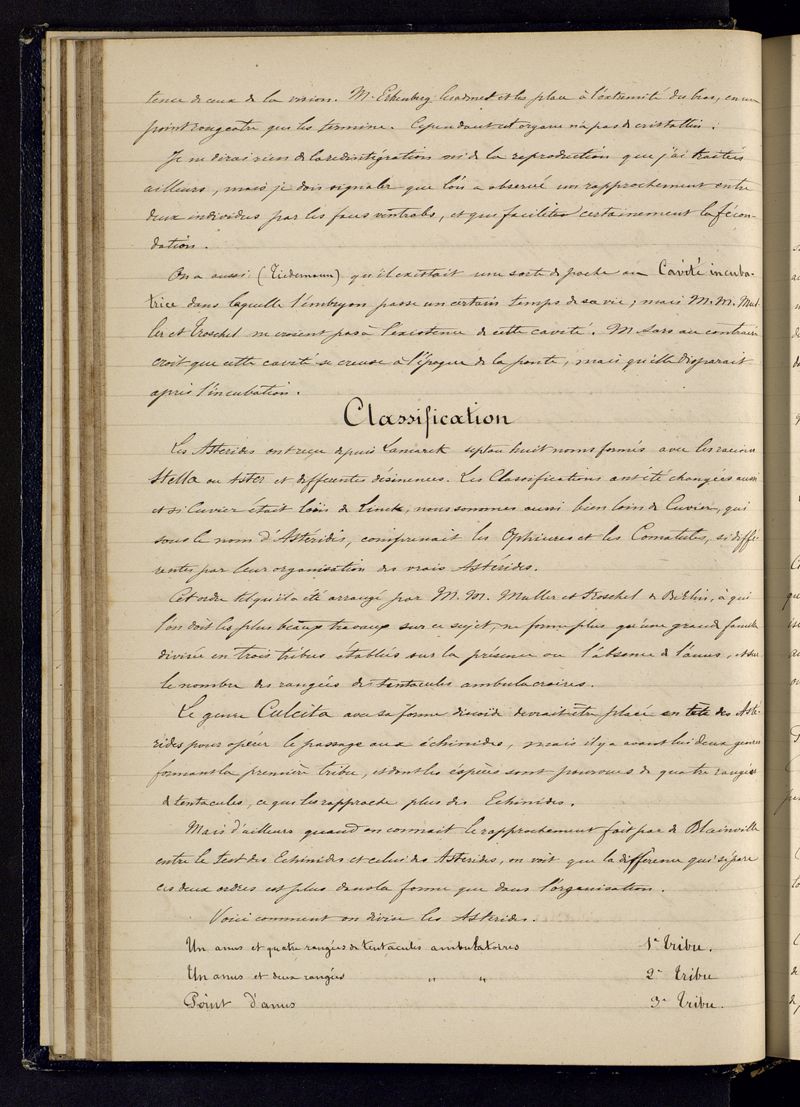 tence de ceux de la vision. M. Erhenberg les admet et les place à l'extremité du bras, en un
point rougeatre qui les termine. Cependant cet organe n'a pas de cristallin.
Je ne dirai rien de la redintégration ni de la reproduction que j'ai traitées
ailleurs, mais je dois signaler que l'on a observé un rapprochement entre
deux individus par les faces ventrales, et que facilite certainement la fécon-
dation.
On a aussi (Tiedemann) qu'il existait une sorte de poche ou Cavité incuba-
trice dans laquelle l'embryon passe un certain temps de sa vie; mais M. M. Mul-
ler et Troschel ne croient pas à l'existence de cette cavité. M Sars au contraire
croit que cette cavité se creuse à l'époque de la ponte, mais qu'elle disparait
après l'incubation.
Classification
Les Astérides ont reçu depuis Lamarck sept ou huit noms formés avec les racines
Stella ou Aster et differentes désinences. Les Classifications ont été changées aussi
et si Cuvier était loin de Linck, nous sommes aussi bien loin de Cuvier, qui
sous le nom d'Astérides, comprenait les Ophiures et les Comatules, si diffé-
rentes par leur organisation des vrais Astérides.
Cet ordre tel qu'il a été arrangé par M. M. Muller et Troschel de Berlin, à qui
l'on doit les plus beaux travaux sur ce sujet, ne forme plus qu'une grande famille
divisée en trois tribus établies sur la présence ou l'absence de l'anus, et sur
le nombre des rangées des tentacules ambulacraires.
Le genre Culcita avec sa forme discoïde devrait être placé en tête des Asté-
rides pour opérer le passage aux échinides, mais il y a avant lui deux genres
formant la première tribu, et dont les éspèces sont pourvues de quatre rangées
de tentacules, ce qui les rapproche plus des Echinides.
Mais d'ailleurs quand on connait le rapprochement fait par de Blainville
entre le test des Echinides et celui des Asterides, on voit que la difference qui sépare
ces deux ordres est plus dans la forme que dans l'organisation.
Voici comment on divise les Astérides.
Un anus et quatre rangées de tentacules ambulatoires 1e Tribu.
Un anus et deux rangées " " 2e Tribu
Point d'anus 3e Tribu.